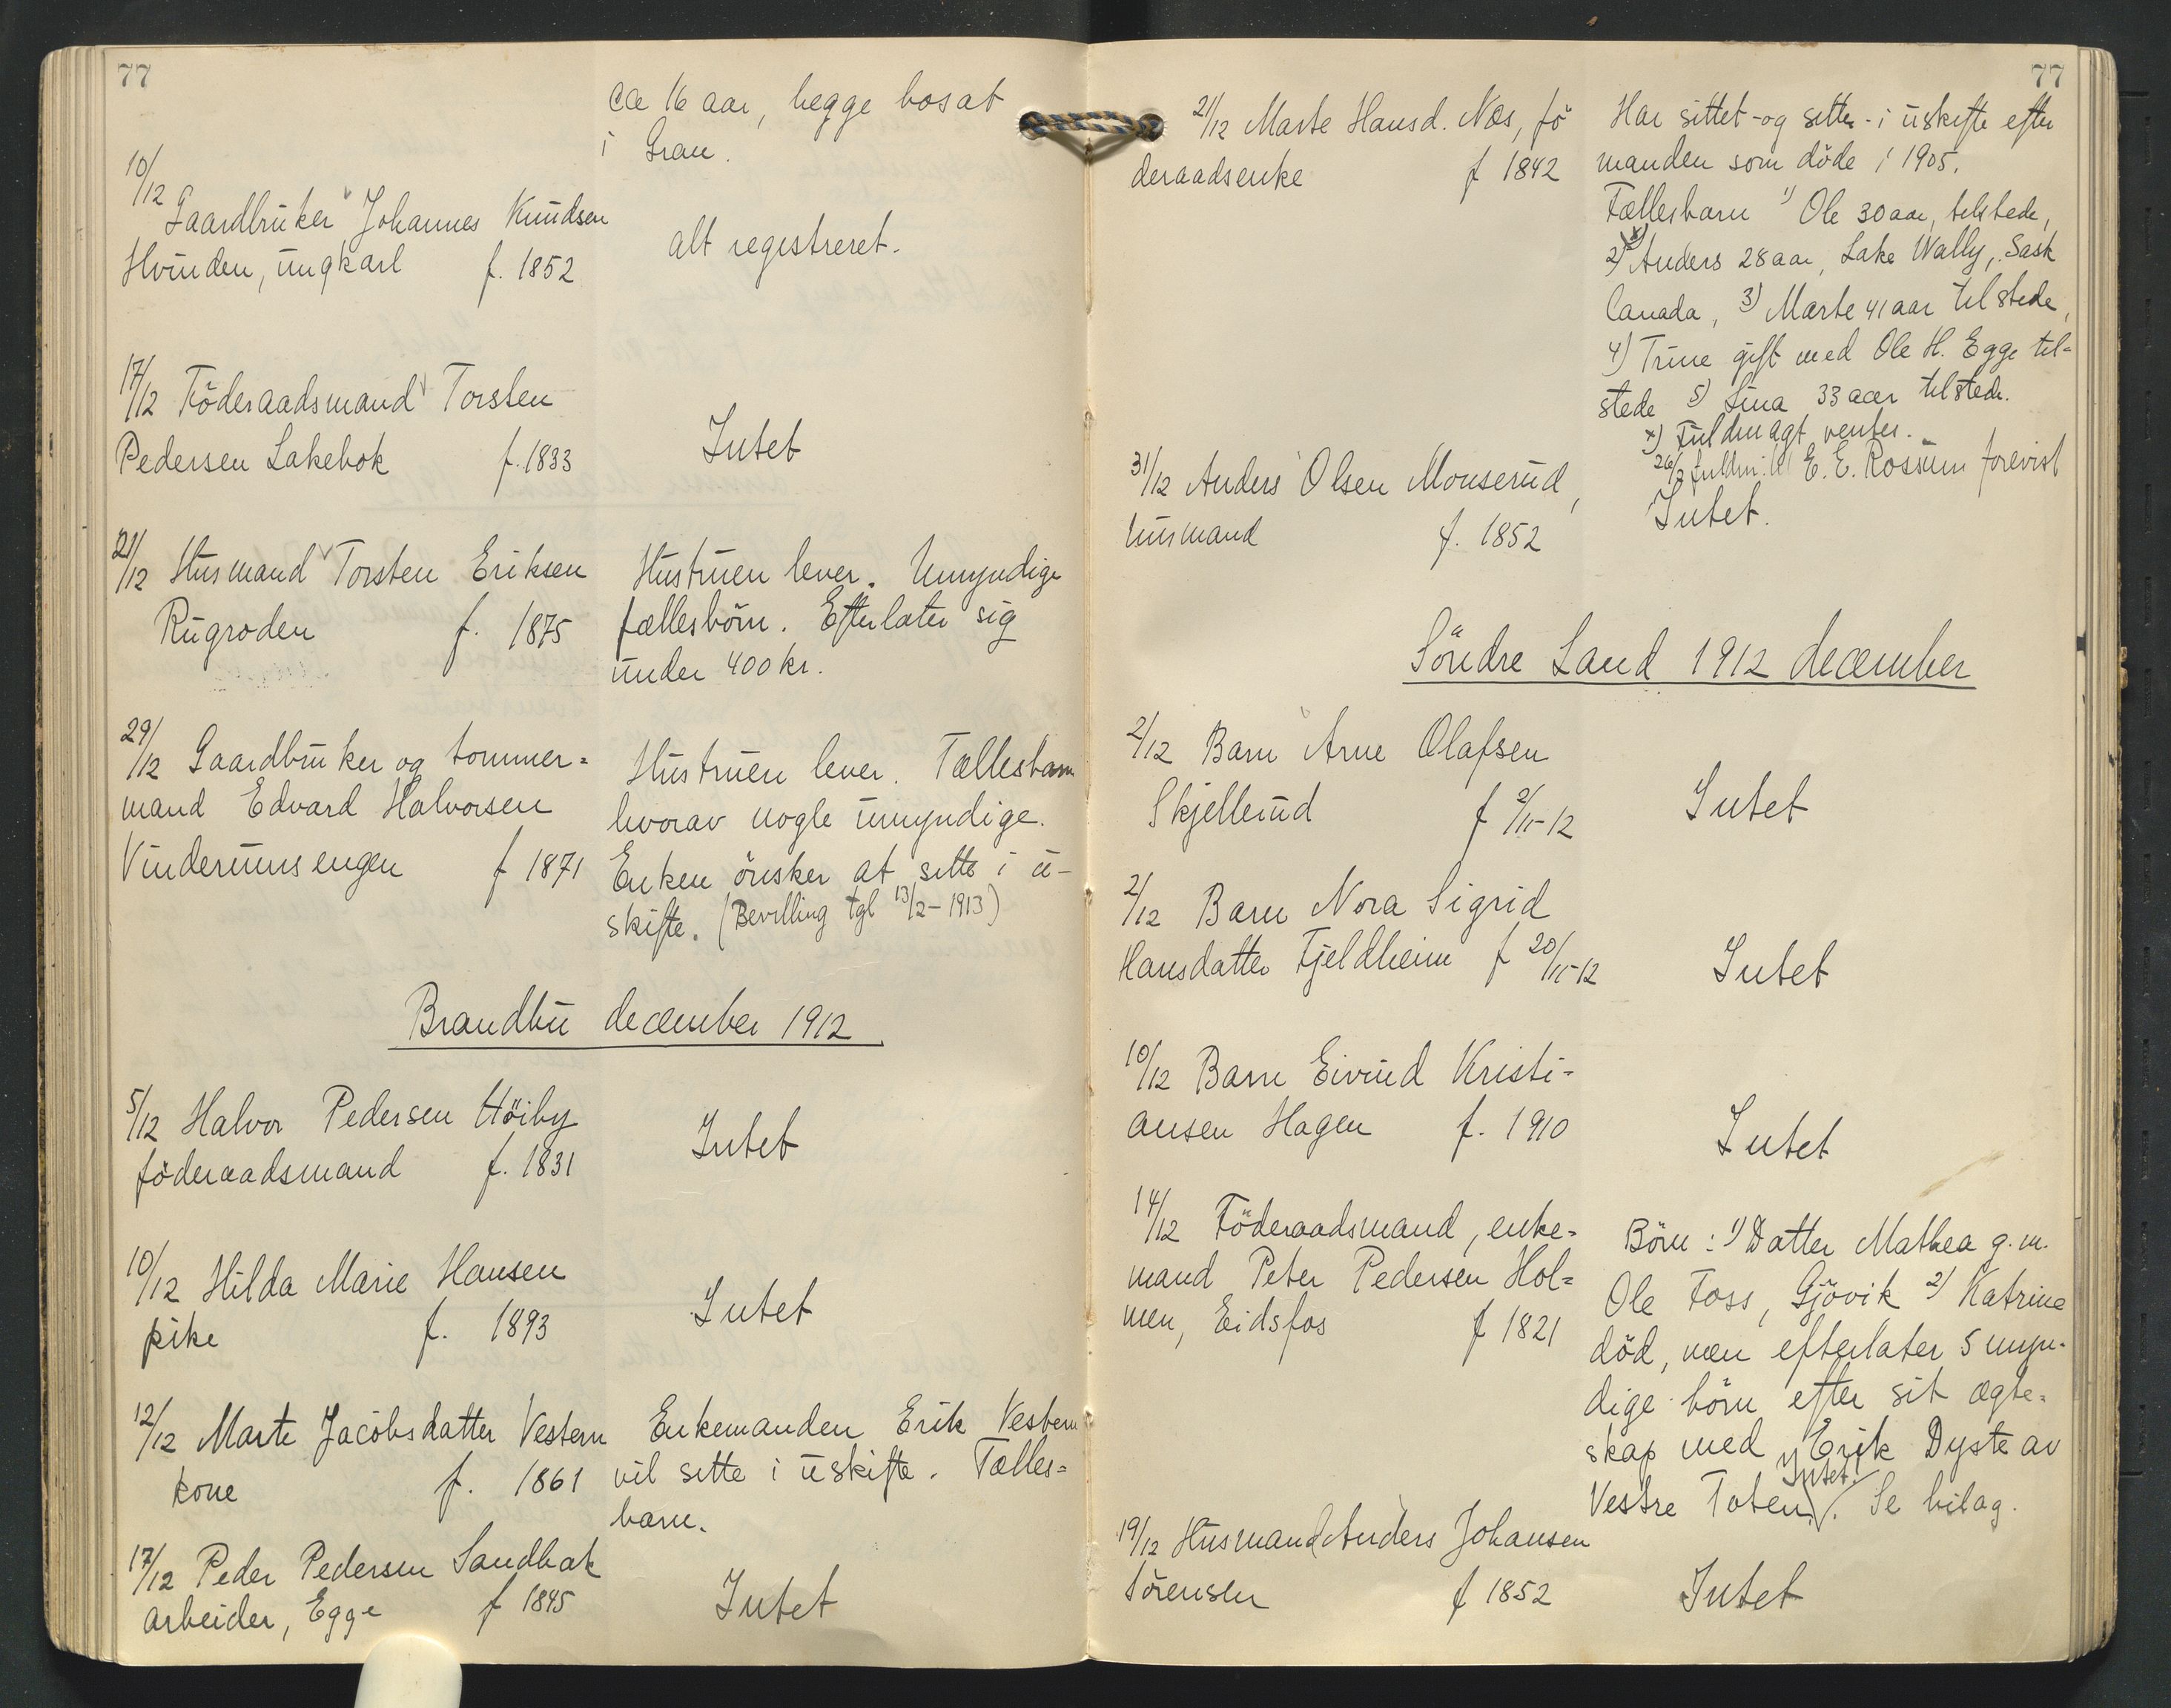 77
ca 16 aar, begge bosat
i Gran.
10/12 Gaardbruker Johannes Knudsen
Hvinden, ungkarl f. 1852
alt registreret.
17/12 Föderaadsmand Torsten
Pedersen Lakebok f. 1833
Intet
21/12 Husmand Torsten Eriksen
Rugroden f. 1875
Hustruen lever. Umyndige
fællesbörn. Efterlater sig
under 400 kr.
29/12 Gaardbruker og tømmer=
mand Edvard Halvorsen
Vinderumsengen f 1871
Hustruen lever. Fællesbarn
hvorav nogle umyndige.
Enken önsker at sitte i u-
skifte. (Bevilling tgl 13/2-1913)
Brandbu december 1912
5/12 Halvor Pedersen Höiby
föderaadsmand f. 1831
Intet
10/12 Hilda Marie Hansen
pike f. 1893
Intet
12/12 Marte Jacobsdatter Vestern
kone f. 1861
Enkemanden Erik Vestern
vil sitte i uskifte. Fælles=
barn.
17/12 Peder Pedersen Sandbak
arbeider, Egge f 1845
Intet
77
21/12 Marte Hansd. Næs, fö
deraadsenke f 1842
Har sittet -og sitter- i uskifte efter
manden som döde i 1905.
Fællesbarn 1) Ole 30 aar, tilstede,
2) x) Anders 28 aar, Lake Wally, Sask
Canada, 3) Marte 41 aar tilstede,
4) Trine gift med Ole H. Egge til=
stede 5) Lina 33 aar tilstede.
x) Fuldmagt ventes.
26/2 fuldm. til E. E. Rossum forevist
31/12 Anders Olsen Monserud,
husmand f. 1852
Intet.
Söndre Land 1912 december
2/12 Barn Arne Olafsen
Skjellerud f 2/11-12
Intet
2/12 Barn Nora Sigrid
Hansdatter Fjeldheim f 20/11-12
Intet
10/12 Barn Eivind Kristi=
ansen Hagen f. 1910
Intet
14/12 Föderaadsmand, enke=
mand Peter Pedersen Hol=
men, Eidsfos f 1821
Börn: 1) Datter Mathea g. m.
Ole Foss, Gjövik 2) Katrine
död, men efterlater 5 myn-
dige börn efter sit ægte=
skap med Erik Dyste av
Intet!
Vestre Toten. Se bilag.
19/12 Husmand Anders Johansen
Sörensen f 1852
Intet